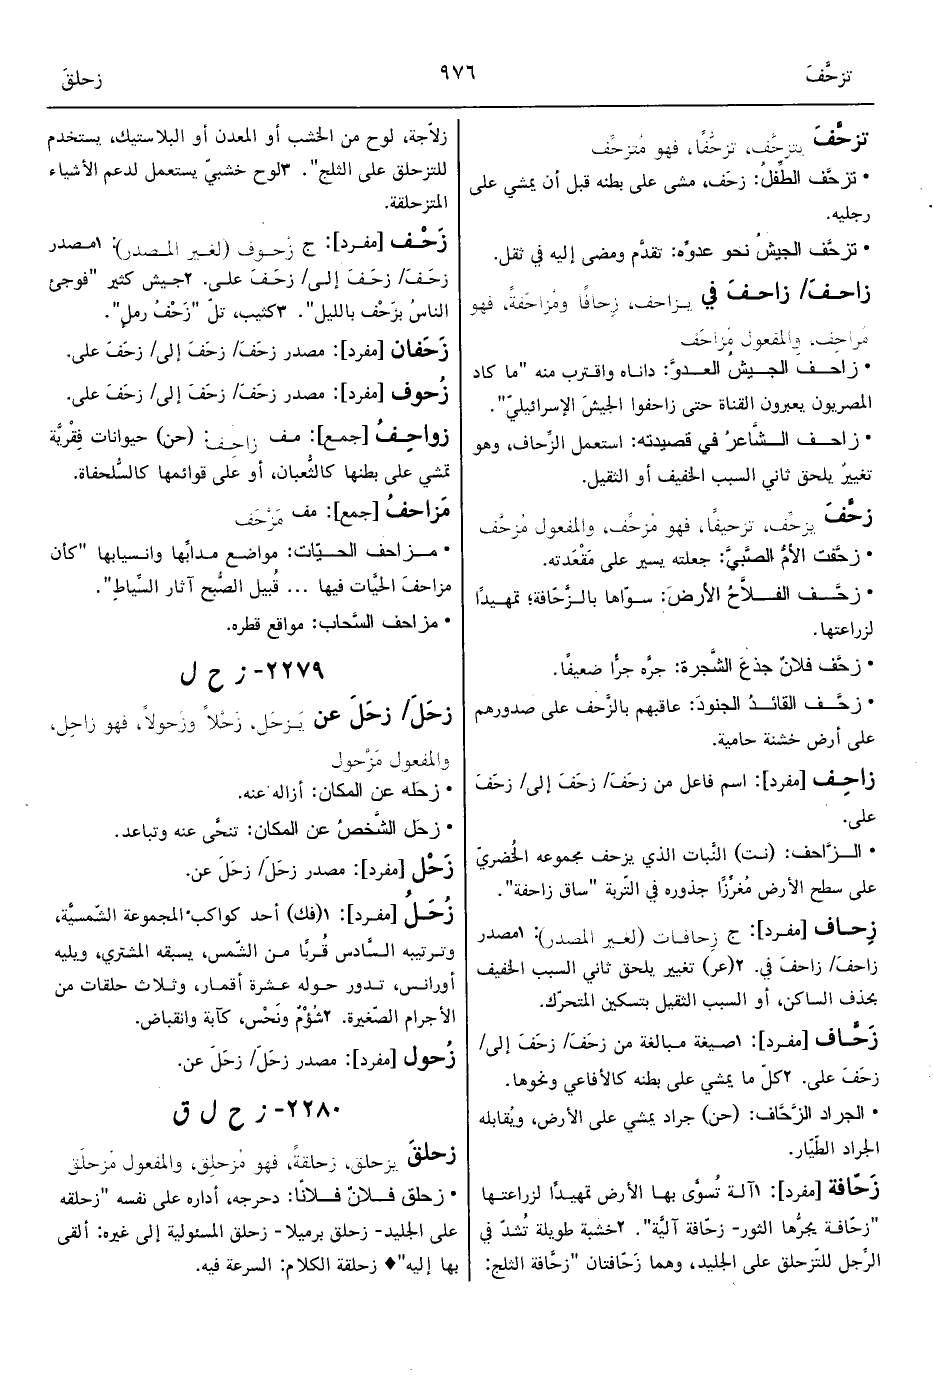 تزحَّفَ
٩٧٦
زحلقَ
تزحَّفَ يتزحَّف، تزحُّفًا، فهو مُتزحِّف
• تزحَّف الطِّفلُ: زحَف، مشى على بطنه قبل أن يمشي على
رجليه.
• تزحَّف الجيشُ نحو عدوِّه: تقدَّم ومضى إليه في ثقل.
زاحفَ/ زاحفَ في يـزاحف، زِحافًا ومُزاحَفةً، فهو
مُزاحِف، والمفعول مُزاحَف
• زاحـف الجـيشُ العـدوَّ: داناه واقترب منه "ما كاد
المصريون يعبرون القناة حتى زاحفوا الجيشَ الإسرائيليّ".
• زاحـف الـشَّاعرُ في قصيدته: استعمل الزِّحاف، وهو
تغييرٌ يلحق ثاني السبب الخفيف أو الثقيل.
زحَّفَ يزحِّف، تزحيفًا، فهو مُزحِّف، والمفعول مُزحَّف
• زحَّفت الأمُّ الصَّبيَّ: جعلته يسير على مَقْعَدته.
• زحَّـف الفـلاَّحُ الأرضَ: سـوّاها بالـزَّحافة؛ تمهـيدًا
لزراعتها.
• زحَّف فلانٌ جذعَ الشَّجرة: جرَّه جرًّا ضعيفًا.
• زحَّـف القائـدُ الجنودَ: عاقبهم بالزَّحف على صدورهم
على أرض خشنة حامية.
زاحِف [مفرد]: اسم فاعل من زحَفَ/ زحَفَ إلى/ زحَفَ
على.
• الـزَّاحف: (نت) النَّبات الذي يزحف مجموعه الخُضريّ
على سطح الأرض مُغرِّزًا جذوره في التّربة "ساق زاحفة".
زِحـاف [مفـرد]: ج زِحافـات (لغـير المـصدر): ١مصدر
زاحفَ/ زاحفَ في. ٢(عر) تغيير يلحق ثاني السبب الخفيف
بحذف الساكن، أو السبب الثقيل بتسكين المتحرّك.
زَحَّـاف [مفـرد]: ١صـيغة مـبالغة من زحَفَ/ زحَفَ إلى/
زحَفَ على. ٢كلّ ما يمشي على بطنه كالأفاعي ونحوها.
• الجراد الزَّحَّاف: (حن) جراد يمشي على الأرض، ويُقابله
الجراد الطّيّار.
زَحَّافة [مفرد]: ١آلـة تُسوَّى بهـا الأرض تمهيدًا لزراعتـها
"زحّافـة يجرُّها الثور- زحّافة آليَّة". ٢خشبة طويلة تُشدّ في
الرِّجل للتّزحلق على الجليد، وهما زَحّافتان "زحَّافة الثلج:
زلاّجة، لوح من الخشب أو المعدن أو البلاستيك، يستخدم
للتزحلق على الثلج". ٣لوح خشبيّ يستعمل لدعم الأشياء
المتزحلقة.
زَحْف [مفـرد]: ج زُحـوف (لغـير المـصدر): ١مـصدر
زحَـفَ/ زحَـفَ إلـى/ زحَـفَ علـى. ٢جـيش كثير "فوجئ
الناسُ بزَحْف بالليل". ٣كثيب، تلّ "زَحْفُ رملٍ".
زَحَفان [مفرد]: مصدر زحَفَ/ زحَفَ إلى/ زحَفَ على.
زُحوف [مفرد]: مصدر زحَفَ/ زحَفَ إلى/ زحَفَ على.
زواحِـفُ [جمع]: مـف زاحِـف: (حن) حيوانات فِقْريَّة
تمشي على بطنها كالثُّعبان، أو على قوائمها كالسُّلحفاة.
مَزاحفُ [جمع]: مف مَزْحَف
• مـزاحف الحـيّات: مواضع مدابِّها وانسيابها "كأن
مزاحفَ الحيَّات فيها ... قُبيل الصُّبح آثار السِّياطِ".
• مزاحف السَّحاب: مواقع قطره.
٢٢٧٩- ز ح ل
زحَلَ/ زحَلَ عن يَـزحَل، زَحْلاً وزُحولاً، فهو زاحِل،
والمفعول مَزْحول
• زحَله عن المكان: أزاله عنه.
• زحَل الشَّخصُ عن المكان: تنحَّى عنه وتباعد.
زَحْل [مفرد]: مصدر زحَلَ/ زحَلَ عن.
زُحَـلُ [مفـرد]: ١(فك) أحد كواكب المجموعة الشّمسيَّة،
وتـرتيبه الـسَّادس قُـربًا مـن الشّمس، يسبقه المشتري، ويليه
أورانـس، تـدور حـوله عـشرة أقمـار، وثـلاث حلقات من
الأجرام الصَّغيرة. ٢شُؤْمٌ ونَحْس، كآبة وانقباض.
زُحول [مفرد]: مصدر زحَلَ/ زحَلَ عن.
٢٢٨٠- ز ح ل ق
زحلقَ يزحلق، زحلقةً، فهو مُزحلِق، والمفعول مُزحلَق
• زحلق فـلانٌ فـلانًا: دحرجه، أداره على نفسه "زحلقه
على الجليد- زحلق برميلا- زحلق المسئولية إلى غيره: ألقى
بها إليه"♦ زحلقة الكلام: السرعة فيه.